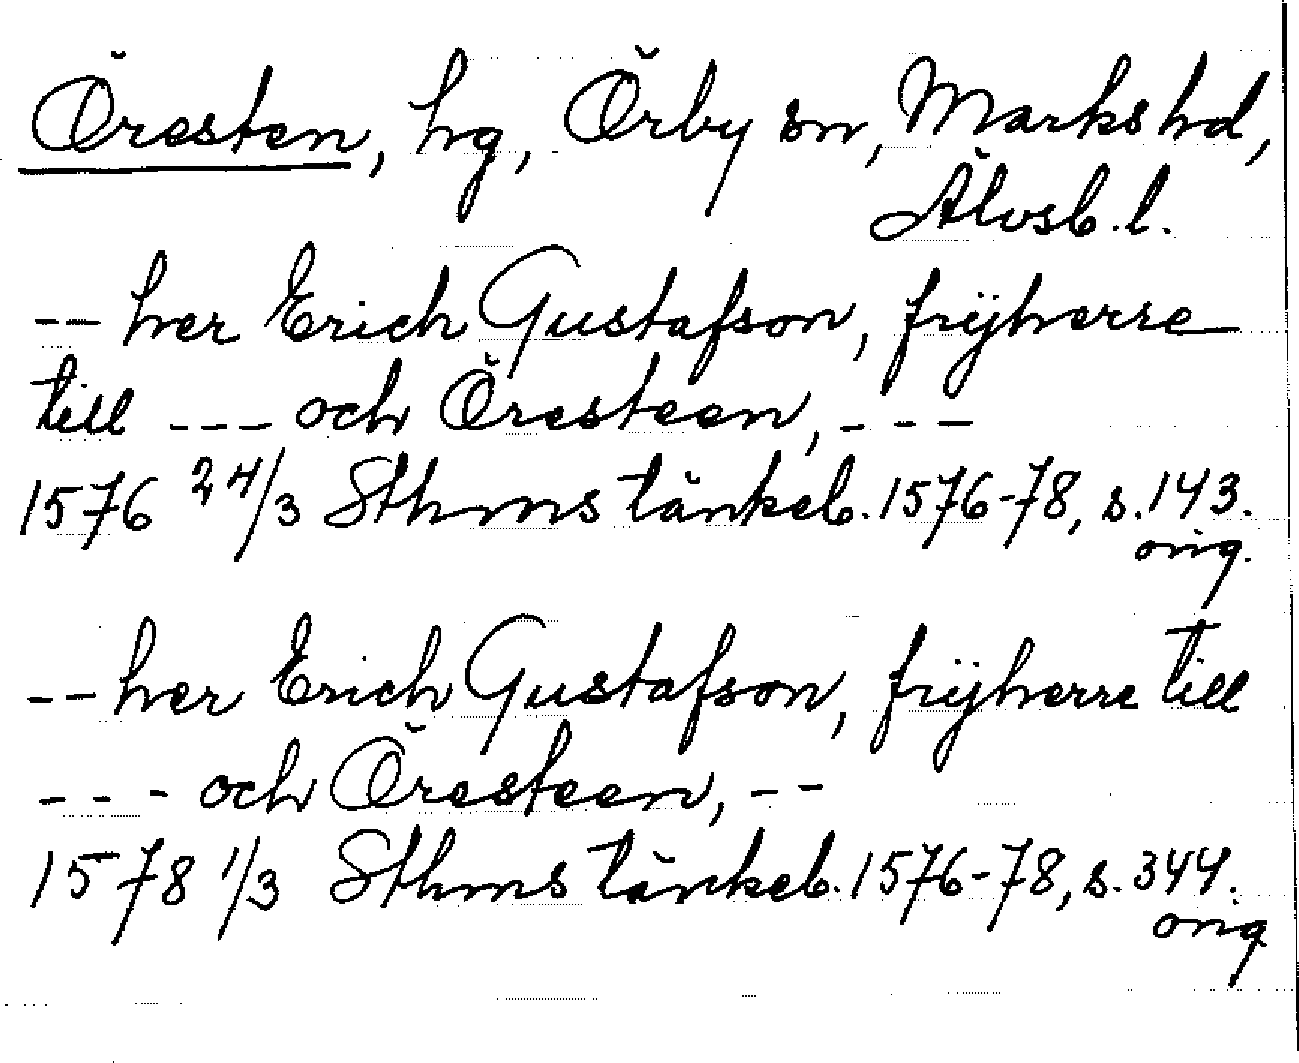 Öresten, hg, Örby sn, Marks hd,
Älvsb. l.
-- her Erich Gustafson, frijherre
till --- och Öresteen, ---
1576 24/3 Sthms tänkeb. 1576-78, s. 143.
orig.
-- her Erich Gustafson, frijherre till
--- och Öresteen, --
1578 1/3 Sthms tänkeb. 1576-78, s. 344.
orig